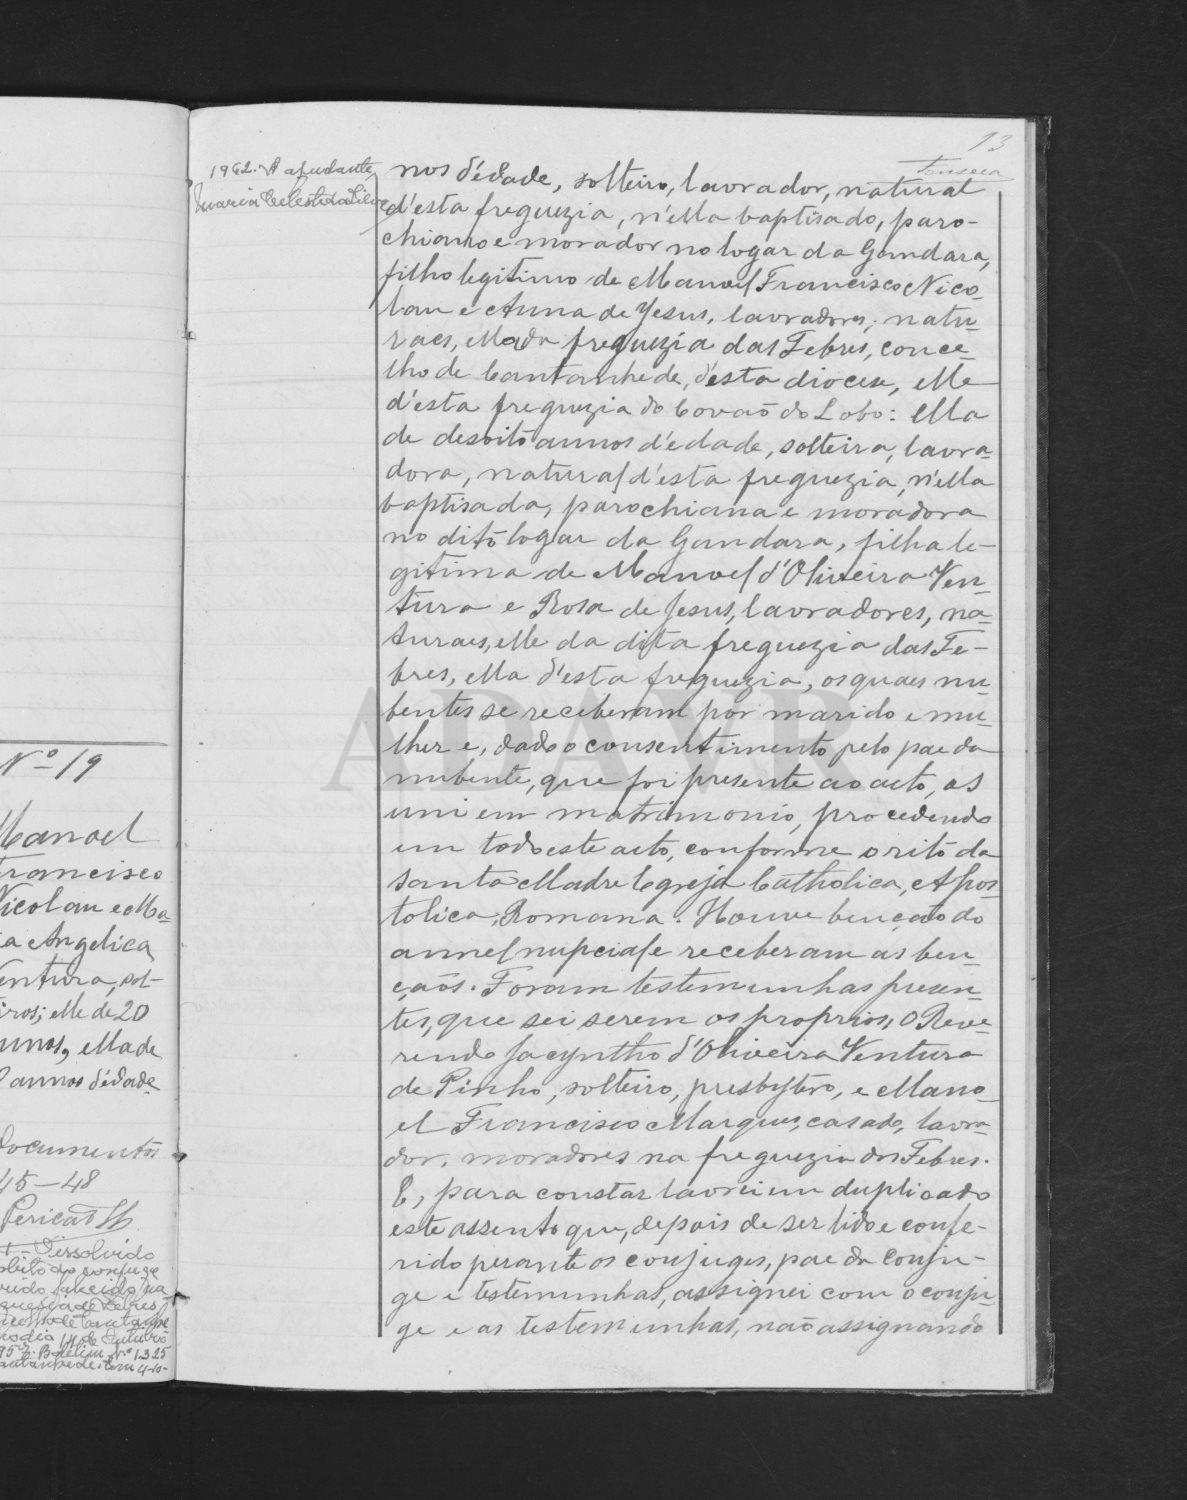 13
Fonseca
1962. A ajudante
Maria Celeste da Silva
nos d'edade, solteiro, lavrador, natural
d'esta freguezia, n'ella baptisado, paro-
chiano e morador no logar da Gandara,
filho legitimo de Manoel Francisco Nico-
lau e Anna de Jesus, lavradores, natu-
raes, ella da freguezia das Febres, conce-
lho de Cantanhede, d'esta diocese, elle
d'esta freguezia do Covaõ do Lobo: Ella
de desoito annos d'edade, solteira, lavra-
dora, natural d'esta freguezia, n'ella
baptisada, parochiana e moradora
no dito logar da Gandara, filha le-
gitima de Manoel d'Oliveira Ven-
tura e Rosa de Jesus, lavradores, na-
turaes, elle da dita freguezia das Fe-
bres, ella d'esta freguezia, os quaes nu-
bentes se receberam por marido e mu-
lher e, dado o consentimento pelo pae da
nubente, que foi presente ao acto, os
uni em matrimonio, procedendo
em todo este acto, conforme o rito da
Santa Madre Egreja Catholica, Apos-
tolica, Romana. Houve bençaõ do
annel nupcial e receberam as ben-
çaõs. Foram testemunhas presen-
tes, que sei serem os proprios, O Reve-
rendo Jacyntho d'Oliveira Ventura
de Pinho, solteiro, presbytero, e Mano-
el Francisco Marques, casado, lavra-
dor, moradores na freguezia das Febres.
E, para constar lavrei em duplicado
este assento que, depois de ser lido e confe-
rido perante os conjuges, pae da conju-
ge e testemunhas, assignei com o conju-
ge e as testemunhas, naõ assignando
Nº 19
Manoel
Francisco
Nicolau e Ma-
ia Angelica
entura, sol-
iros; elle de 20
unos, ella de
annos d'edade
Documentos
45-48
Dissolvido
obito do conjuge
rido falecido na
guesia de Febres
de Cantanhe
no dia 14 de Outubro
Boletim nº 1325
antanhede. Em 4-10-
ADAVR